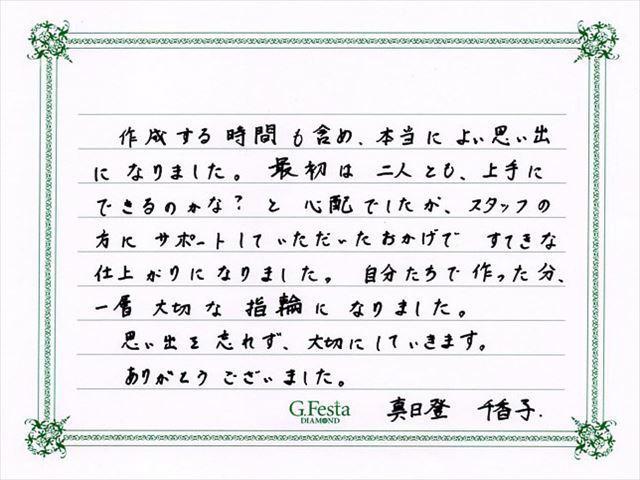 作成する時間も含め、本当によい思い出
になりました。最初は二人とも、上手に
できるのかな？と心配でしたが、スタッフの
方にサポートしていただいたおかげですてきな
仕上がりになりました。自分たちで作った分、
一層大切な指輪になりました。
思い出を忘れず、大切にしていきます。
ありがとうございました。
G.Festa
DIAMOND
真日登 千香子.